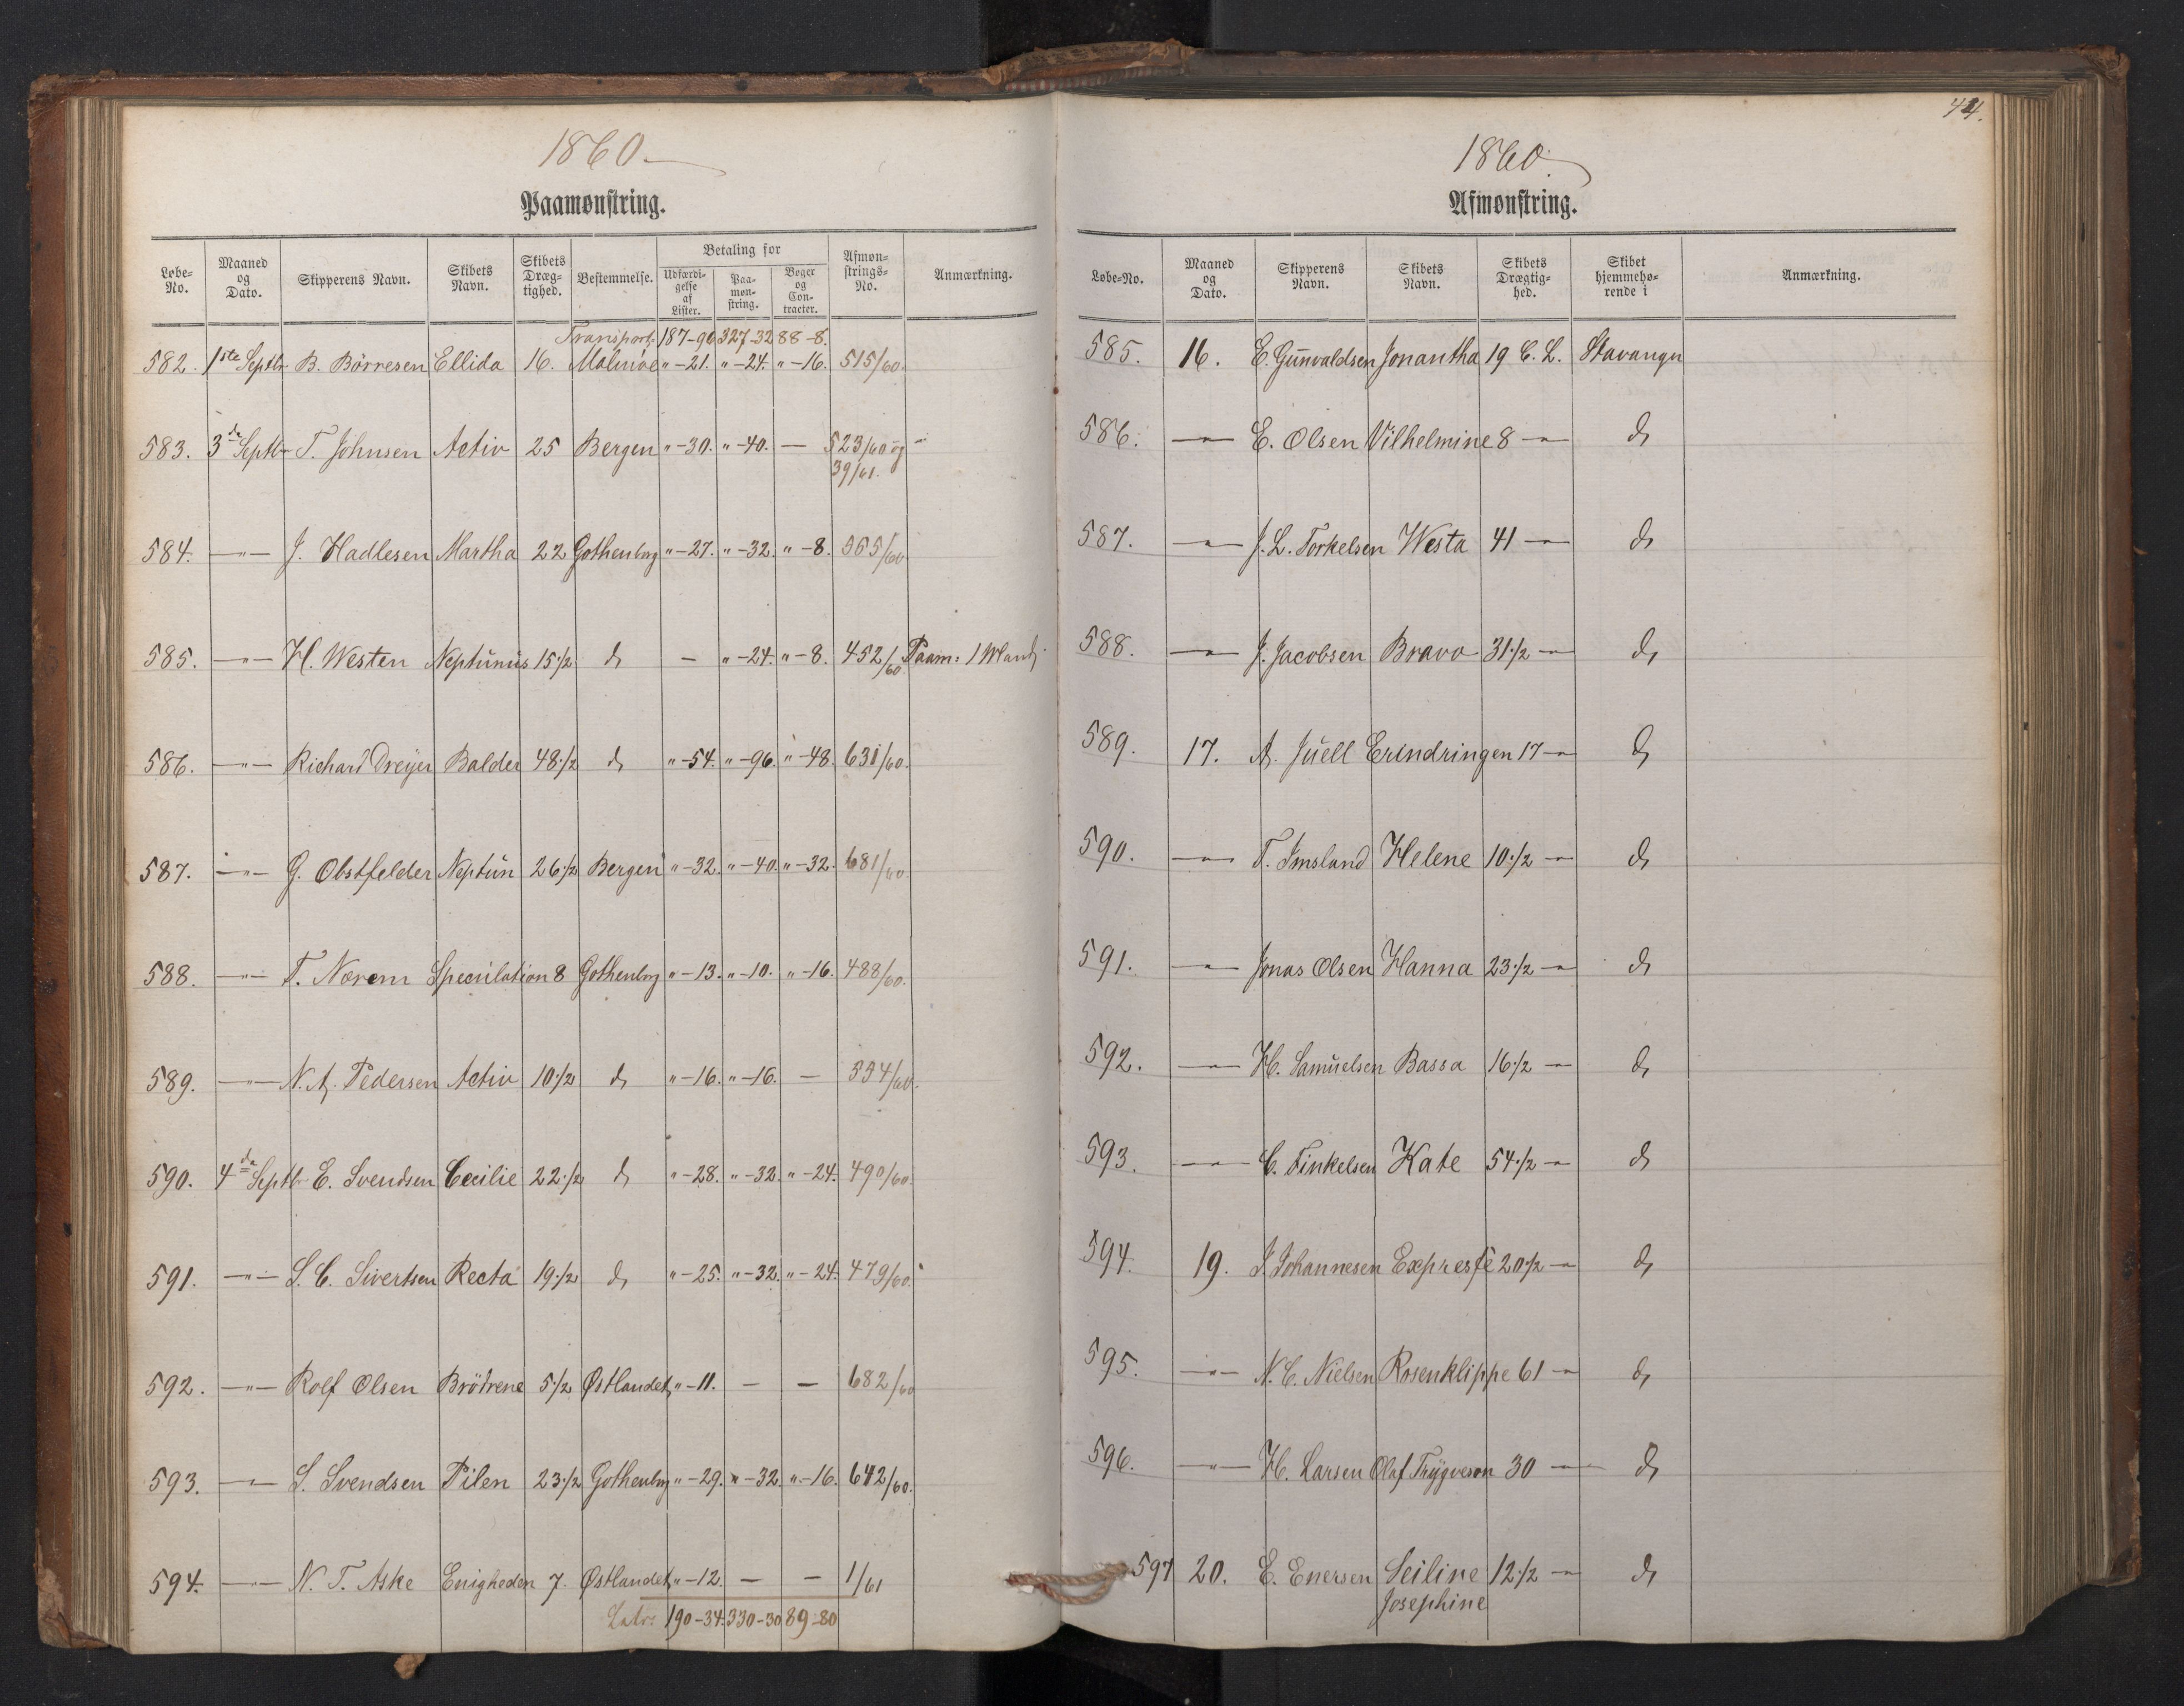 1860
Paamønstring.
Løbe-No. | Maaned og Dato. | Skipperens Navn. | Skibets Navn. | Skibets Dræg-tighed. | Bestemmelse. | Betaling for | Udfærdi-gelse af Lister. | Paa-møn-string. | Bøger og Con-tracter. | Afmøn-strings-No. | Anmærkning.
Transport: 187-90 327-32 88-8.
582. 1ste Septbr B. Börresen Ellida 16. Malmöe "-21. "-24. "-16. 515/60.
583. 3de Septbr T. Johnsen Activ 25 Bergen "-30. "-40. — 523/60 og
39/61.
584. —"— J. Hadlesen Martha 22 Gothenborg "-27. "-32. "-8. 565/60
585. —"— H. Westen Neptunus 15 1/2 do — "-24. "-8. 452/60 Paam: 1 Mand
586. —"— Richard Dreyer Balder 48 1/2 do "-54. "-96. "-48. 631/60.
587. —"— G. Obstfelder Neptun 26 1/2 Bergen "-32. "-40. "-32. 681/60
588. —"— T. Nærem Speculation 8 Gothenborg "-13. "-10. "-16. 488/60.
589. —"— N. A. Pedersen Activ 10 1/2 do "-16. "-16. — 554/60.
590. 4de Septb E. Svendsen Cecilie 22 1/2 do "-28. "-32. "-24. 490/60.
591. —"— S. C. Sivertsen Recta 19 1/2 do "-25. "-32. "-24. 479/60.
592. —"— Rolf Olsen Brödrene 5 1/2 Østlandet "-11. — — 682/60
593. —"— S. Svendsen Pilen 23 1/2 Gothenborg "-29. "-32. "-16. 642/60.
594. —"— N. T. Aske Enigheden 7. Østlandet "-12. — — 1/61
Latus 190-34. 330-30 89-80
44.
1860
Afmønstring.
Løbe-No. | Maaned og Dato. | Skipperens Navn. | Skibets Navn. | Skibets Drægtig-hed. | Skibet hjemmehø-rende i | Anmærkning.
585. 16. E. Gunvaldsen Jonantha 19 C. L. Stavanger
586. —"— E. Olsen Vilhelmine 8 —"— do
587. —"— J. L. Torkelsen Westa 41 —"— do
588. —"— J. Jacobsen Bravo 31 1/2 —"— do
589. 17. A. Juell Erindringen 17 —"— do
590. —"— T. Imsland Helene 10 1/2 —"— do
591. —"— Jonas Olsen Hanna 23 1/2 —"— do
592. —"— H. Samuelsen Bassa 16 1/2 —"— do
593. —"— C. Tinkelsen Kate 54 1/2 —"— do
594. 19. J. Johannesen Expresse 20 1/2 —"— do
595. —"— N. C. Nielsen Rosenklippe 61 —"— do
596. —"— H. Larsen Olaf Trygveson 30 —"— do
597 20. E. Enersen Seiline 12 1/2 —"— do
Josephine